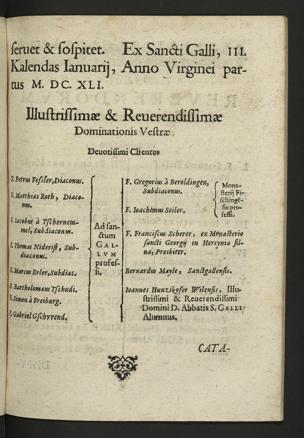 seruet & sospitet. Ex Sancti Galli, III.
Kalendas Ianuarij, Anno Virginei par-
tus M. DC. XLI.
Illustrissimæ & Reuerendissimæ
Dominationis Vestræ
Deuotissimi Clientes
F. Petrus Fessler, Diaconus.
F. Matthias Roth, Diaco-
nus.
F. Iacobus à Tschernem-
mel, Subdiaconus.
F. Thomas Niderist, Sub-
diaconus.
F. Marcus Erler, Subdiac.
F. Bartholomæus Tschudi.
F. Simon à Freiburg.
F. Gabriel Gschvvend.
Ad san-
ctum
GAL-
LVM
profes-
si.
F. Gregorius à Beroldingen,
Subdiaconus.
F. Ioachimus Seiler.
Mona-
sterij Fi-
schinge-
sis pro-
fessi.
F. Franciscus Scherer, ex Monasterio
sancti Georgij in Hercynia sil-
ua, Presbiter.
Bernardus Mayle, Sanctgallensis.
Ioannes Huntzikofer Wilensis, Illu-
strissimi & Reuerendissimi
Domini D. Abbatis S. GALLI
Alumnus.
CATA-